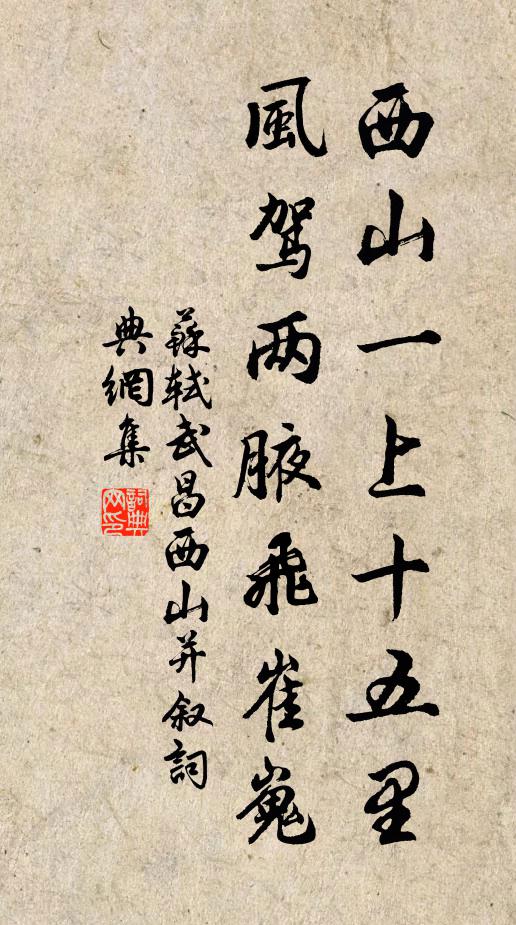 西山一上十五里
風駕两腋飛崔嵬
蘇軾武昌西山并叙詞
典網集
詞典
网印